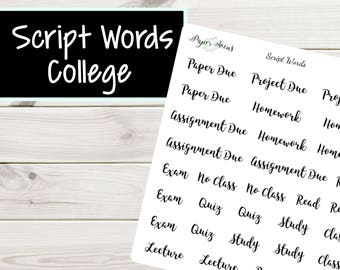 Script Words
College
Script Words
Paper Due Project Due
Paper Due Homework
Assignment Due Homework
Assignment Due Assignment Due
Exam No Class No Class Read
Exam Quiz Quiz Study
Exam Quiz Study
Lecture Lecture Study